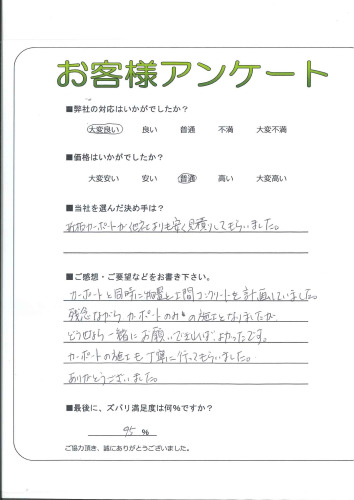 お客様アンケート
■弊社の対応はいかがでしたか?
大変良い 良い 普通 不満 大変不満
■価格はいかがでしたか?
大変安い 安い 普通 高い 大変高い
■当社を選んだ決め手は?
カーポートが他社よりも安く見積りしてもらいました。
■ご感想・ご要望などをお書き下さい。
カーポートと同時に物置と土間コンクリートも計画していました。
残念ながらカーポートのみの施工となりましたが
どうせなら一緒にお願いできればよかったです。
カーポートの施工も丁寧に行ってもらいました。
ありがとうございました。
■最後に、ズバリ満足度は何%ですか?
95 %
ご協力頂き、誠にありがとうございました。